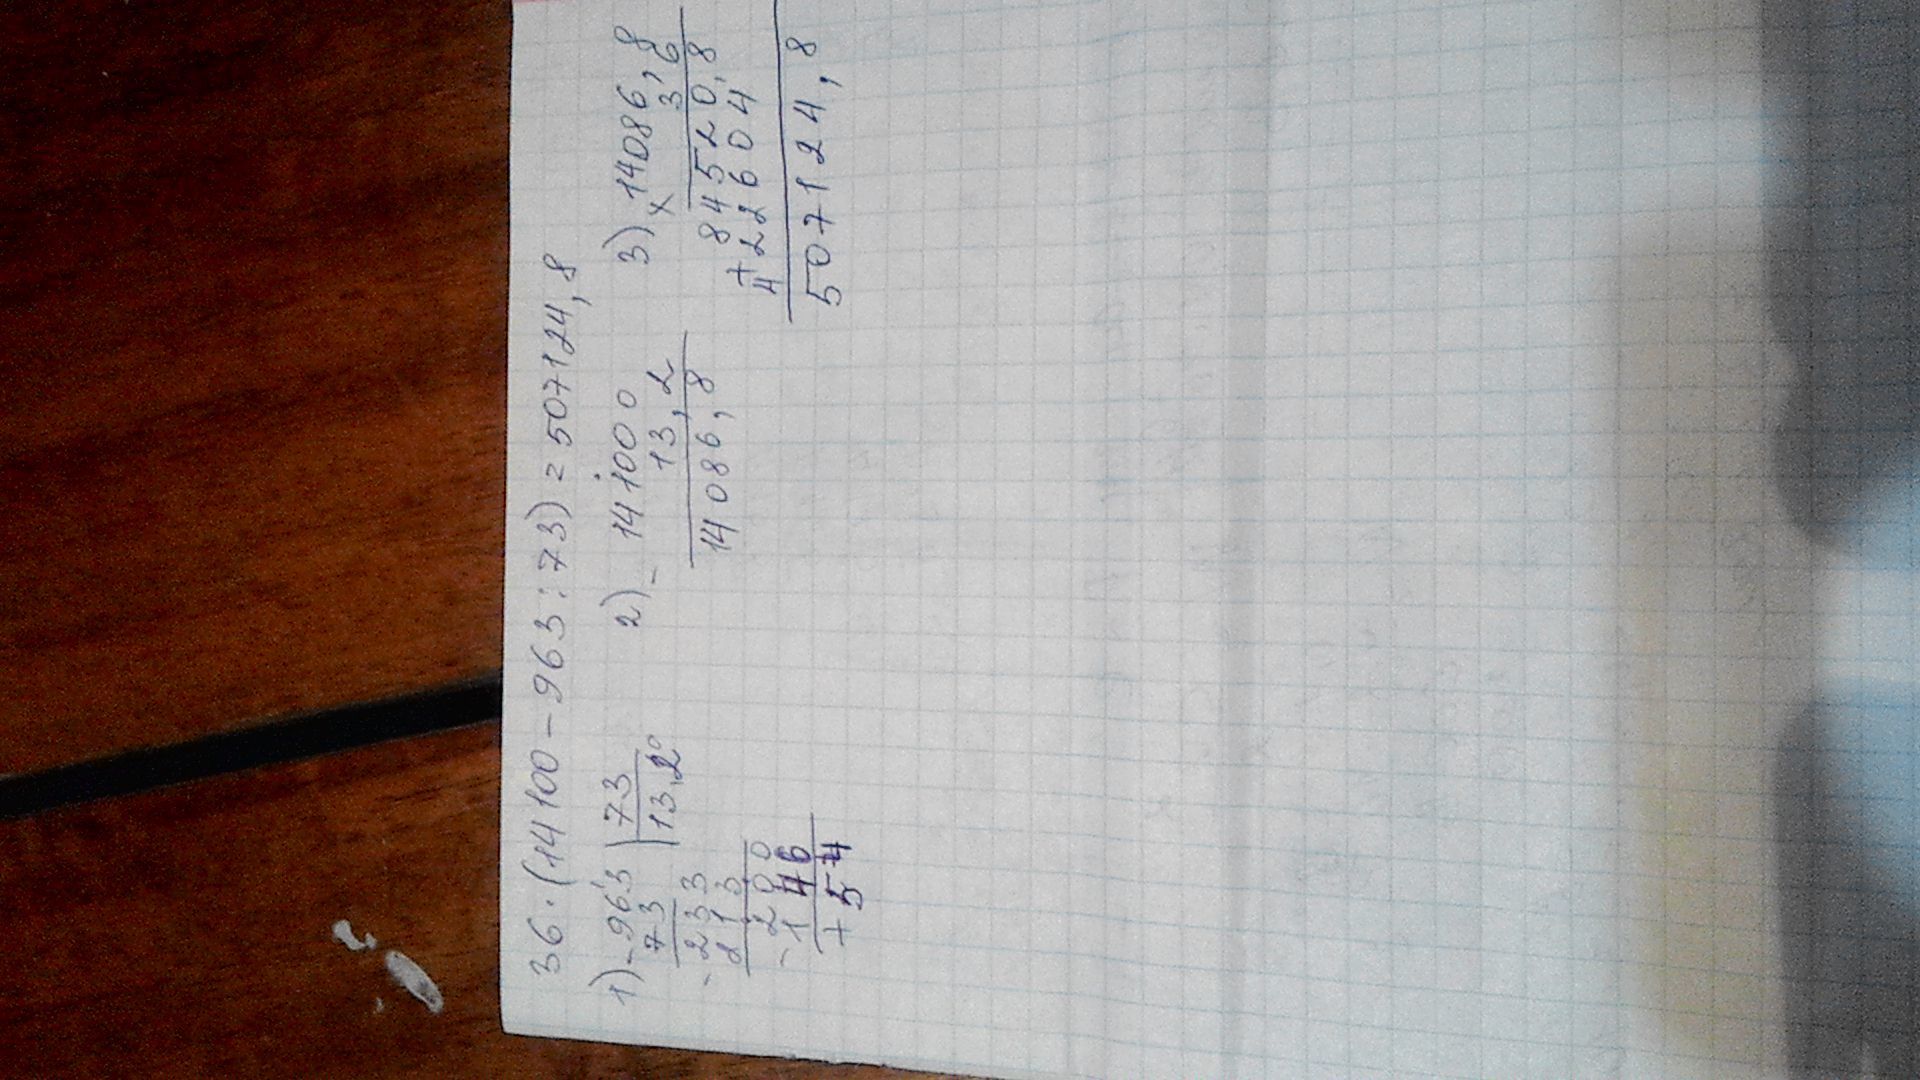 36·(14100-963:73)=507124,8
1) -963 |73
73 |13,2
-233
213
-200
146
+54
2) -14100
13,2
14086,8
3) ×14086,8
36
84520,8
+
422604
507124,8